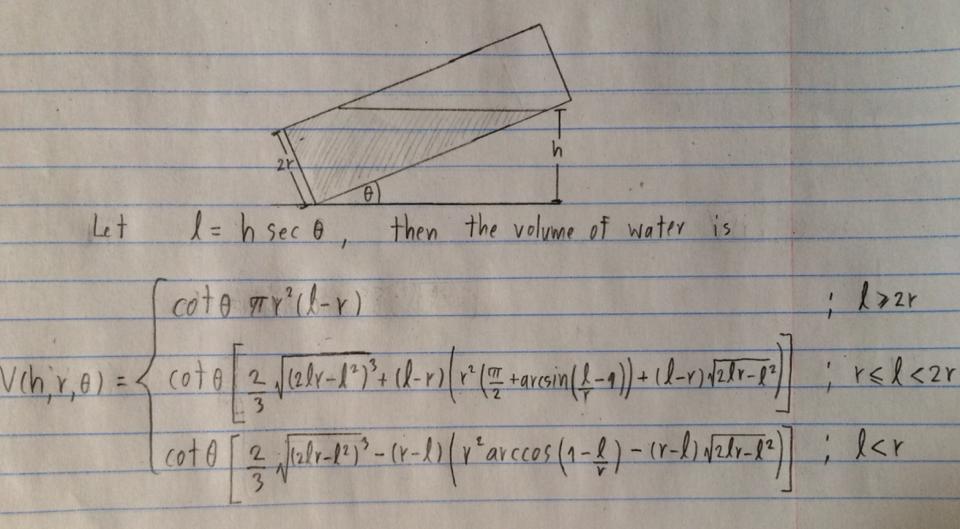 2r
θ
h
Let l = h sec θ, then the volume of water is
V(h,r,θ) = {
cotθ πr²(l-r) ; l ≥ 2r
cotθ [ 2/3 √(2lr-l²)³ + (l-r) ( r² ( π/2 + arcsin( l/r - 1 ) ) + (l-r) √2lr-l² ) ] ; r ≤ l < 2r
cotθ [ 2/3 √(2lr-l²)³ - (r-l) ( r² arccos ( 1 - l/r ) - (r-l) √2lr-l² ) ] ; l < r